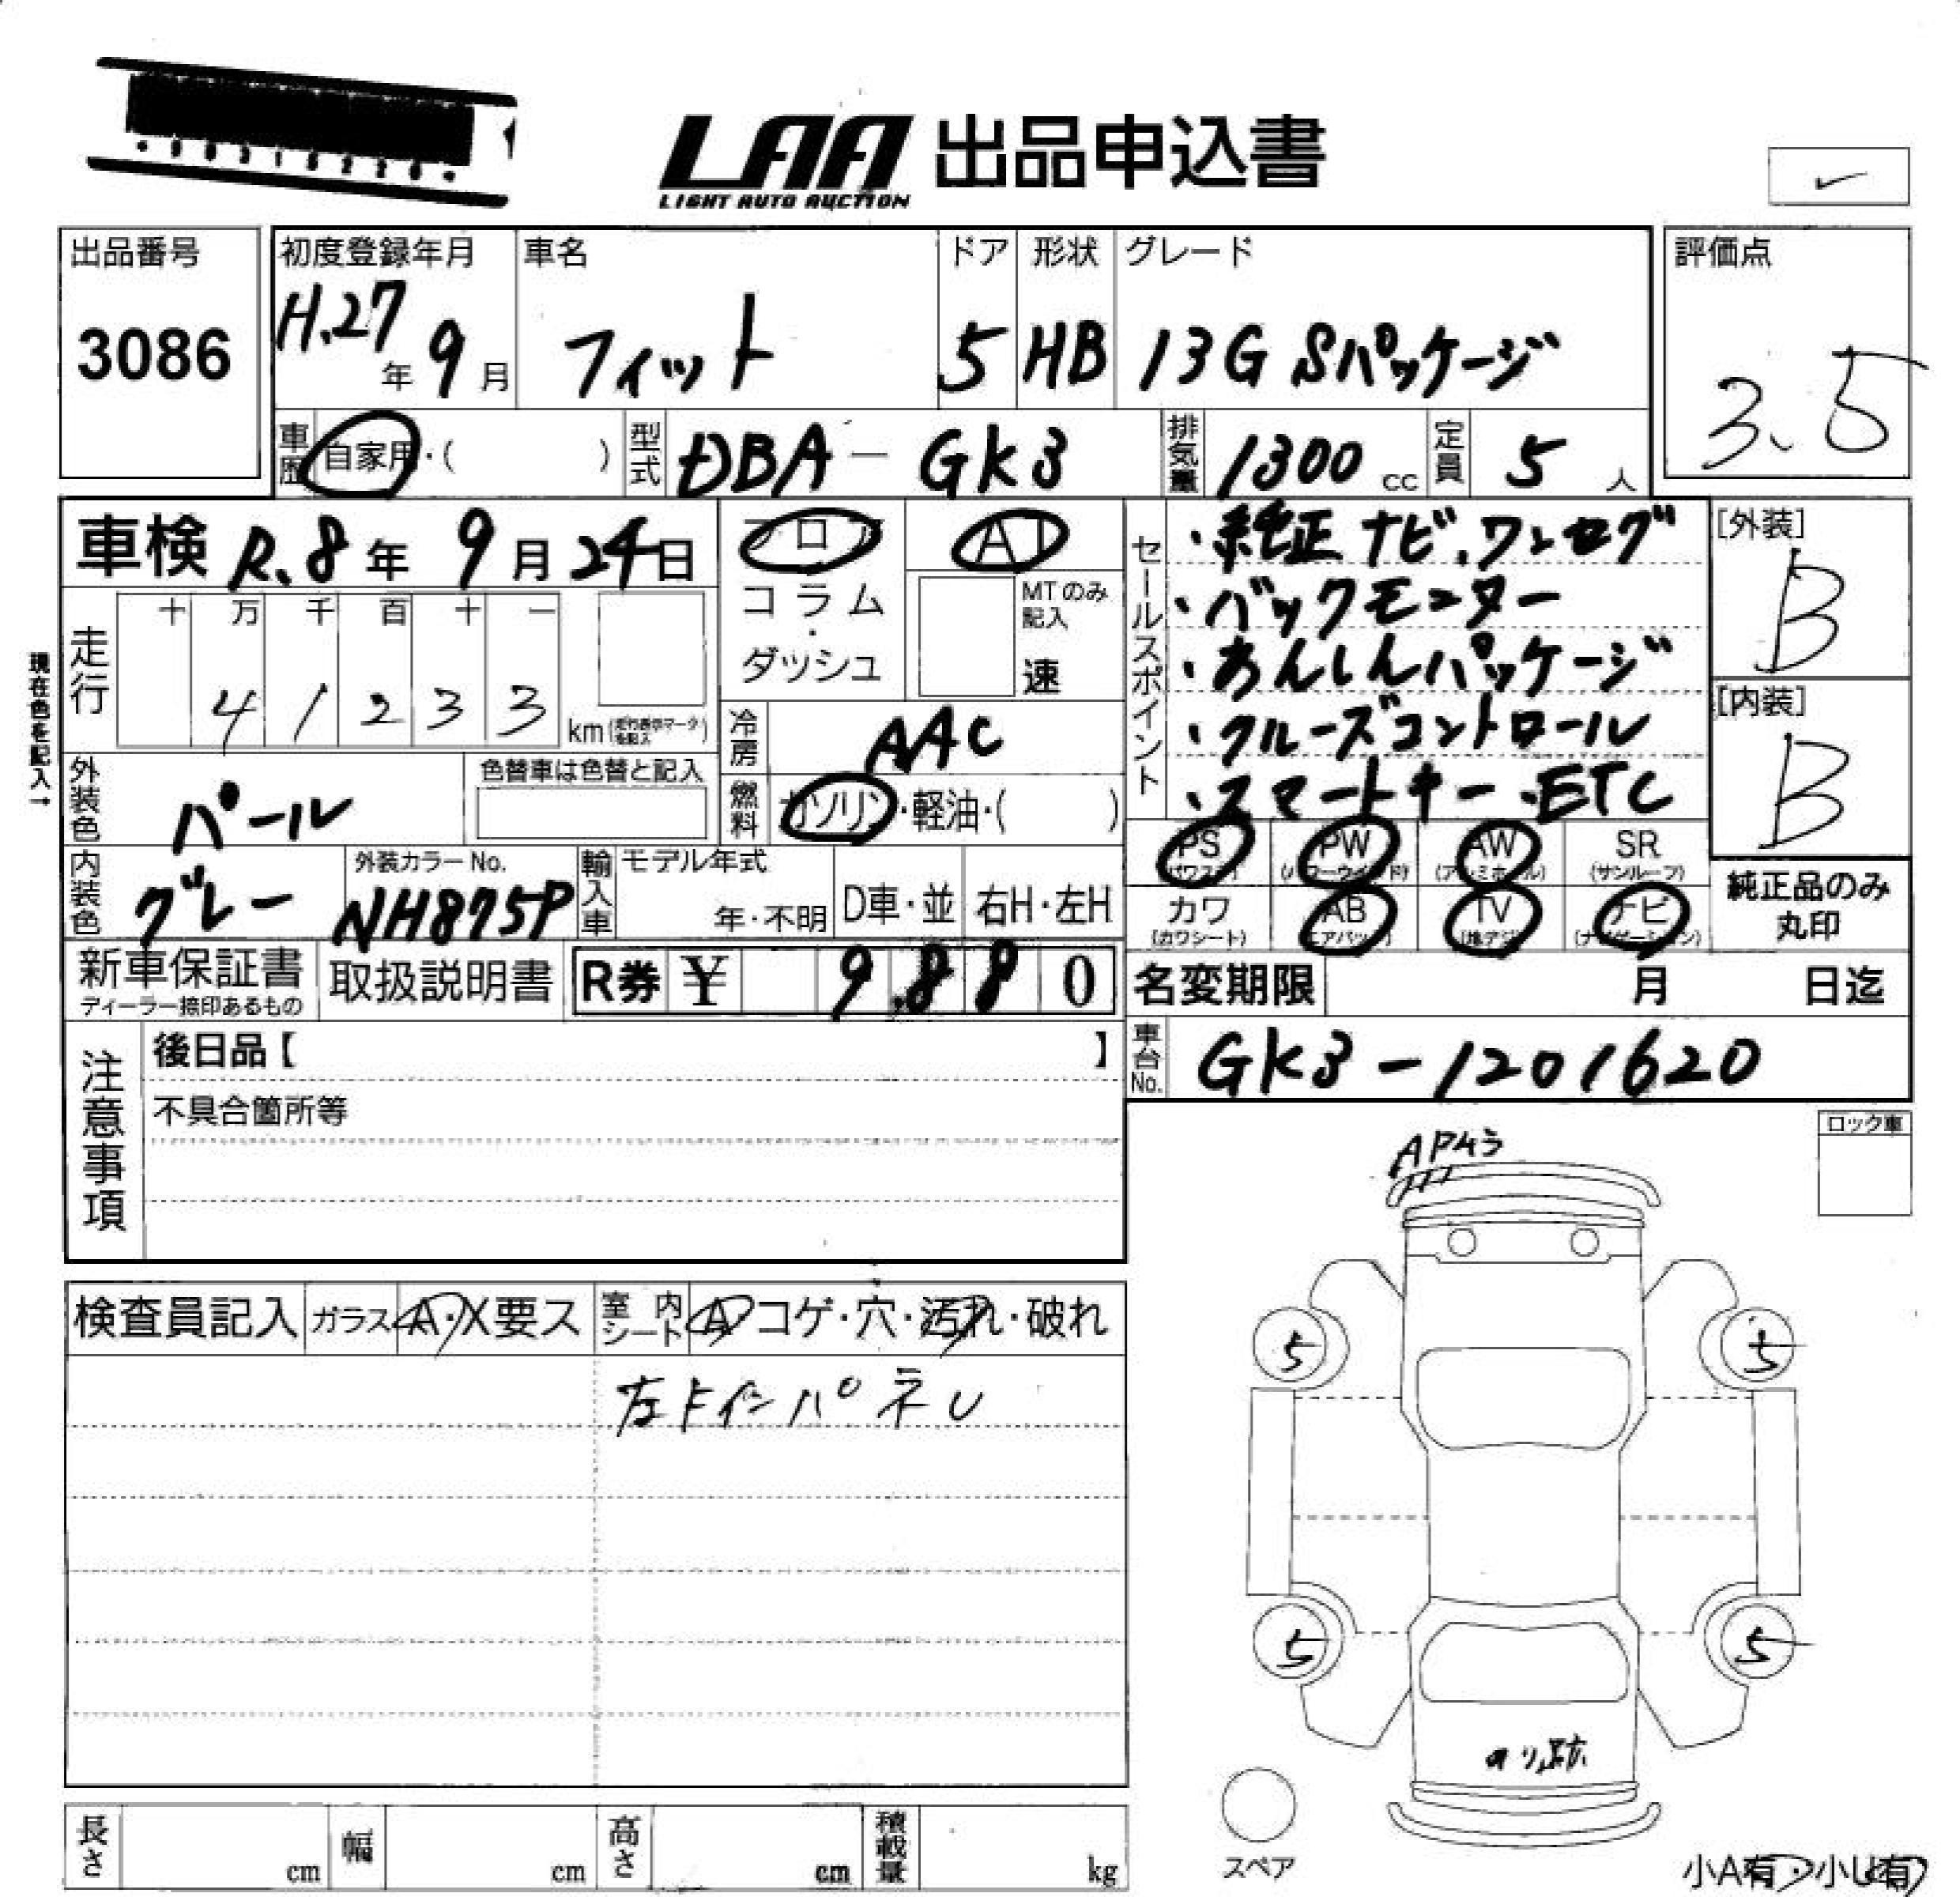 LAA 出品申込書
LIGHT AUTO AUCTION
出品番号
3086
初度登録年月
H.27年 9月
車名
フィット
ドア
5
形状
HB
グレード
13G Sパッケージ
評価点
3.5
車歴 自家用・( )
型式 DBA-GK3
排気量 1300 cc
定員 5 人
車検 R.8年 9月 24日
フロア
コラム
・
ダッシュ
AT
MTのみ記入
速
セールスポイント
・純正ナビ、ワンセグ
・バックモニター
・あんしんパッケージ
・クルーズコントロール
・スマートキー・ETC
[外装]
B
[内装]
B
現在色を記入→
走行
十 万 千 百 十 一
4 1 2 3 3
km(走行表示マークを記入)
冷房 AAC
外装色 パール
色替車は色替と記入
燃料 ガソリン・軽油・( )
内装色 グレー
外装カラーNo.
NH875P
輸入車
モデル年式
年・不明
D車・並
右H・左H
PS (パワステ)
PW (パワーウインド)
AW (アルミホイル)
SR (サンルーフ)
カワ (カワシート)
AB (エアバック)
TV (地デジ)
ナビ (ナビゲーション)
純正品のみ
丸印
新車保証書
ディーラー捺印あるもの
取扱説明書
R券 ¥ 9,880
名変期限 月 日迄
注意事項
後日品【 】
不具合箇所等
車台No. GK3-1201620
ロック車
AP4う
検査員記入
ガラス A・X要ス
室内シート A コゲ・穴・汚れ・破れ
左トインパネU
5
5
5
5
のり跡
スペア
小A有・小U有
長さ cm
幅 cm
高さ cm
積載量 kg